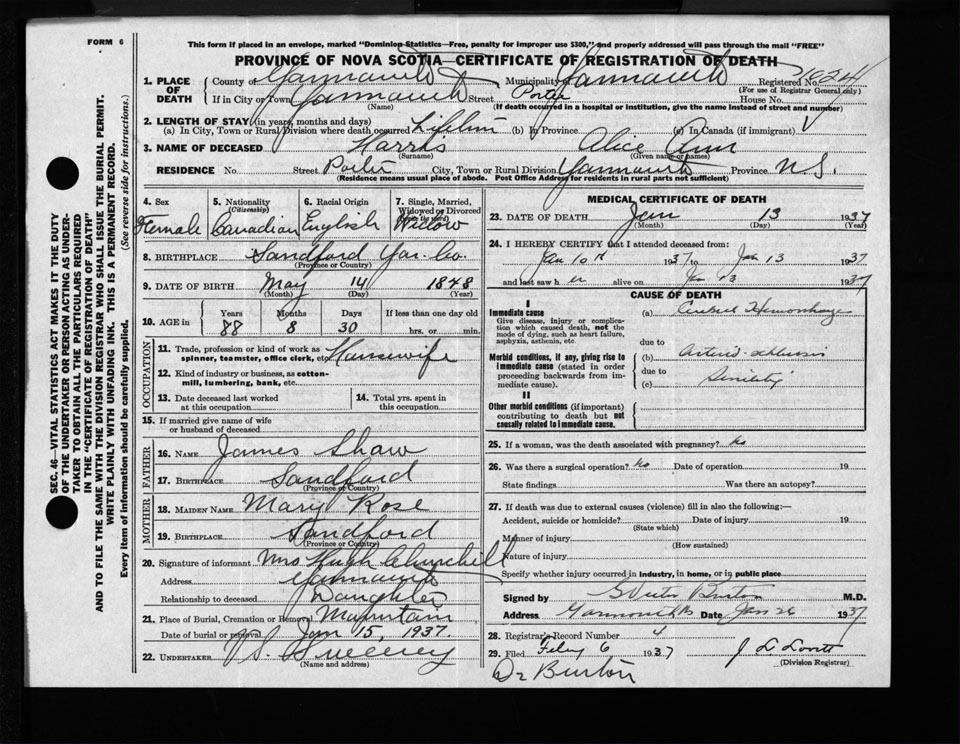 FORM 6
This form if placed in an envelope, marked "Dominion Statistics—Free, penalty for improper use $300," and properly addressed will pass through the mail "FREE"
PROVINCE OF NOVA SCOTIA—CERTIFICATE OF REGISTRATION OF DEATH
1. PLACE OF DEATH County of Yarmouth Municipality Yarmouth Registered No. 824
(For use of Registrar General only)
If in City or Town Yarmouth Street Porter House No.
(Name) (If death occurred in a hospital or institution, give the name instead of street and number)
2. LENGTH OF STAY (in years, months and days)
(a) In City, Town or Rural Division where death occurred (b) In Province (c) In Canada (if immigrant)
3. NAME OF DECEASED Harris Alice Ann
(Surname) (Given name or names)
RESIDENCE No. Street Porter City, Town or Rural Division Yarmouth Province N.S.
(Residence means usual place of abode. Post Office Address for residents in rural parts not sufficient)
4. Sex Female
5. Nationality (Citizenship) Canadian
6. Racial Origin English
7. Single, Married, Widowed or Divorced Widow
8. BIRTHPLACE Sandford Yar. Co.
(Province or Country)
9. DATE OF BIRTH May 14 1848
(Month) (Day) (Year)
10. AGE in Years 88 Months 8 Days 30 If less than one day old hrs. or min.
OCCUPATION
11. Trade, profession or kind of work as spinner, teamster, office clerk, etc. Housewife
12. Kind of industry or business, as cotton-mill, lumbering, bank, etc.
13. Date deceased last worked at this occupation
14. Total yrs. spent in this occupation
15. If married give name of wife or husband of deceased
FATHER
16. NAME James Shaw
17. BIRTHPLACE Sandford
(Province or Country)
MOTHER
18. MAIDEN NAME Mary Rose
19. BIRTHPLACE Sandford
(Province or Country)
20. Signature of informant Mrs Hugh Churchill
Address Yarmouth
Relationship to deceased Daughter
21. Place of Burial, Cremation or Removal Mountain
Date of burial or removal Jan 15, 1937.
22. UNDERTAKER Sweeney
(Name and address)
MEDICAL CERTIFICATE OF DEATH
23. DATE OF DEATH Jan 13 1937
(Month) (Day) (Year)
24. I HEREBY CERTIFY that I attended deceased from:
Jan 10th 1937 to Jan 13 1937
and last saw her alive on Jan 13 1937
CAUSE OF DEATH
I
Immediate cause
Give disease, injury or complication which caused death, not the mode of dying, such as heart failure, asphyxia, asthenia, etc.
(a) Cerebral Hemorrhage
due to
Morbid conditions, if any, giving rise to immediate cause (stated in order proceeding backwards from immediate cause).
(b) Arterio-sclerosis
due to
(c) Senility
II
Other morbid conditions (if important) contributing to death but not causally related to immediate cause.
25. If a woman, was the death associated with pregnancy? No
26. Was there a surgical operation? No Date of operation 19
State findings Was there an autopsy?
27. If death was due to external causes (violence) fill in also the following:—
Accident, suicide or homicide? Date of injury 19
(State which)
Manner of injury
(How sustained)
Nature of injury
Specify whether injury occurred in industry, in home, or in public place
Signed by Burton M.D.
Address Yarmouth Date Jan 26 1937
28. Registrar's Record Number 4
29. Filed Feby 6 1937 J L Lovitt
(Division Registrar)
Dr Burton
SEC. 46—VITAL STATISTICS ACT MAKES IT THE DUTY
OF THE UNDERTAKER OR PERSON ACTING AS UNDER-
TAKER TO OBTAIN ALL THE PARTICULARS REQUIRED
IN THE "CERTIFICATE OF REGISTRATION OF DEATH"
AND TO FILE THE SAME WITH THE DIVISION REGISTRAR WHO SHALL ISSUE THE BURIAL PERMIT.
WRITE PLAINLY WITH UNFADING INK. THIS IS A PERMANENT RECORD.
Every item of information should be carefully supplied. (See reverse side for instructions.)